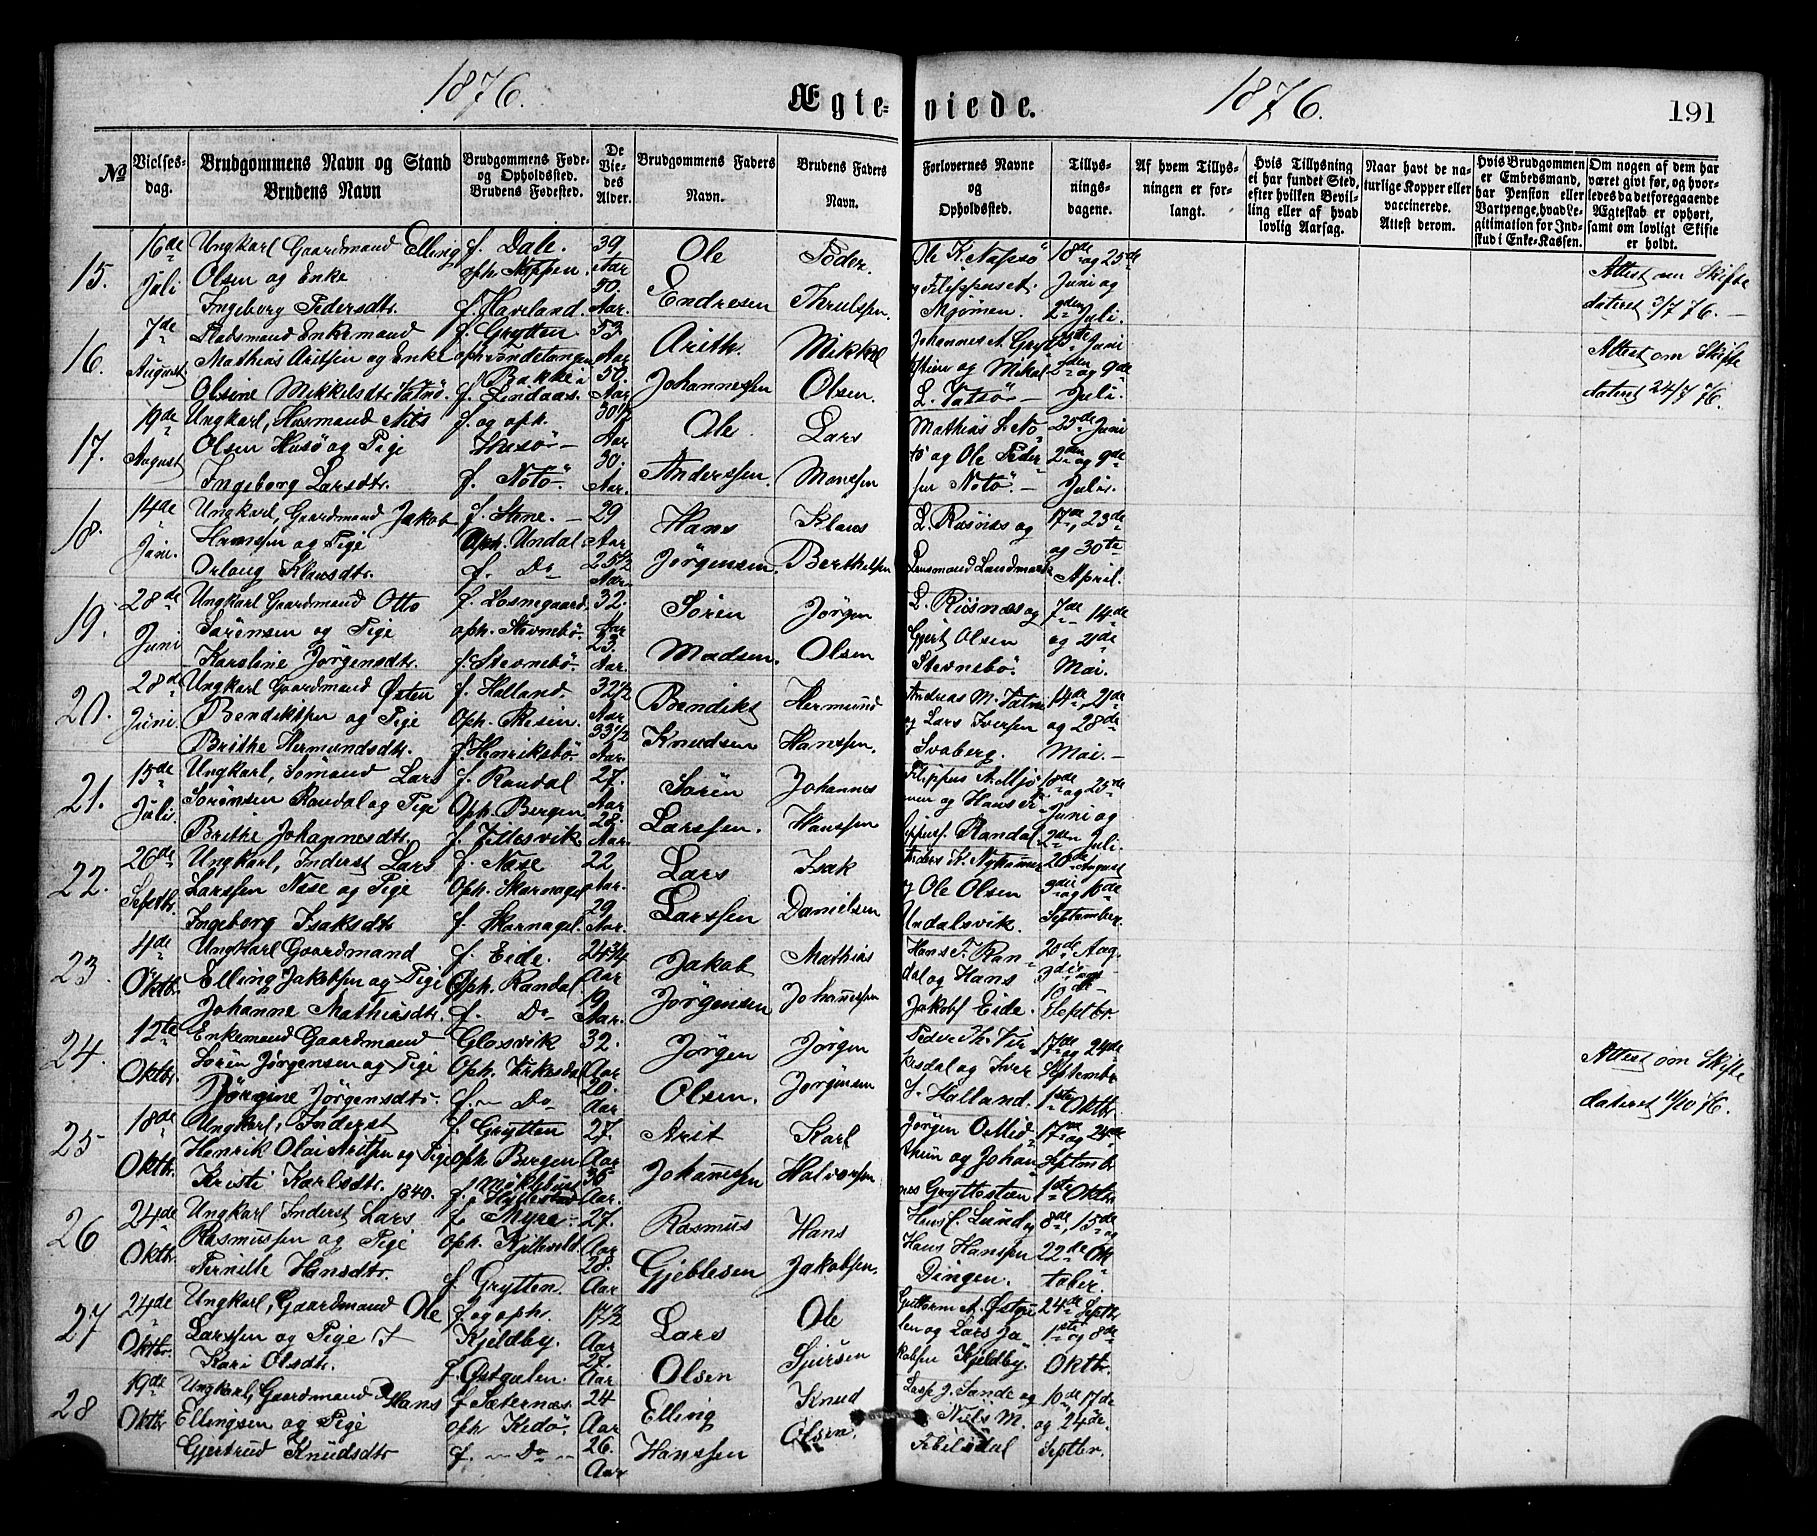 1876. Ægte- viede. 1876. 191
No
Vielses-
dag.
Brudgommens Navn og Stand
Brudens Navn
Brudgommens Føde-
og Opholdssted.
Brudens Fødested.
De
Vie-
des
Alder.
Brudgommens Faders
Navn.
Brudens Faders
Navn.
Forlovernes Navne
og
Opholdssted.
Tillys-
nings-
dagene.
Af hvem Tillys-
ningen er for-
langt.
Hvis Tillysning
ei har fundet Sted,
efter hvilken Bevil-
ling eller af hvad
lovlig Aarsag.
Naar havt de na-
turlige Kopper eller
vaccinerede.
Attest derom.
Hvis Brudgommen
er Embedsmand,
har Pension eller
Vartpenge, hvad Le-
gitimation for Ind-
skud i Enke-Kassen.
Om nogen af dem har
været givt før, og hvor-
ledes da det foregaaende
Ægteskab er ophørt,
samt om lovligt Skifte
er holdt.
15.
16de Juli
Ungkarl Gaardmand Elling
Olsen og Enke
Ingeborg Pedersdtr.
f. Dale.
oph.
f. Haveland.
39 Aar
50. Aar.
Ole
Endresen
Peder
Ole K.
Mjömen.
18de og 25de
Juni og
2den Juli.
Attest om Skifte
dateret 3/7 76.
16.
7de August
Pladsmand Enkemand
Mathias Aritsen og Enke
Olsine Mikkelsdtr.
f. Grytten
oph.
f. Bakke i
Lindaas.
53. Aar
50. Aar
Arith.
Johannessen
Mikkel
Olsen.
Johannes A.
og Mikal
L.
Juni
2den og 9de
Juli.
Attest om Skifte
dateret 24/7 76.
17.
19de August
Ungkarl, Husmand Nils
Olsen Husø og Pige
Ingeborg Larsdtr.
f. og oph.
Husør
f. Notö.
30 1/2 Aar
30. Aar.
Ole
Anderssen.
Lars
Monssen
Mathias L. No
tö og Ole Peder
sen Notö.
25de Juni
2den og 9de
Juli.
18.
14de Juni.
Ungkarl, Gaardmand Jakob
Hanssen og Pige
Orlaug Klausdtr.
f. Stene.
Oph. Undal
f. Do
29 Aar
25 1/2 Aar
Hans
Jørgensen.
Klaus
Berthelsen
L. Risnæs og
Lensmand Landmark
17de, 23de
og 30te
April.
19.
28de Juni
Ungkarl Gaardmand Otto
Sørensen og Pige
Karoline Jørgensdtr.
f. Losnegaard
oph. Stevnebö.
f. Stevnebö
32. Aar
23. Aar.
Sören
Madsen.
Jørgen
Olsen
L. Risnæs og
Gjert Olsen
Stevnebö.
7de 14de
og 21de
Mai.
20.
28de Juni.
Ungkarl Gaardmand Østen
Bendiktsen og Pige
Brithe Hermundsdtr.
f. Halland.
Oph. Risin.
f. Henriksbö
32 1/2 Aar
33 1/2 Aar.
Bendikt
Knudsen
Hermund
Hanssen.
Andreas M.
og Lars Iversen
Svaberg.
14de, 21de
og 28de
Mai.
21.
15de Juli
Ungkarl, Sømand Lars
Sørensen Randal og Pige
Brithe Johannesdtr.
f. Randal
Oph. Bergen
f.
27. Aar
28. Aar.
Sørén
Larssen.
Johannes
Hanssen
Filippus A. Mjö
men og Hans Fi
lippus. Randal
18de og 25de
Juni og
2den Juli.
22.
26de Septbr.
Ungkarl, Inderst Lars
Larssen Nese og Pige
Ingeborg Isaksdtr.
f. Nese
Oph. Skarnagel
f. Skarnagel.
22 Aar.
29 Aar.
Lars
Larssen
Isak
Danielsen
Anders K.
og Ole Olsen
Undalsvik.
20de August
3die og 10de
September.
23.
4de Oktbr.
Ungkarl Gaardmand
Elling Jakobsen og Pige
Johanne Mathiasdtr.
f. Eide.
Oph. Randal
f. Do
24 3/4 Aar
19 Aar.
Jakob
Jørgensen
Mathias
Johannessen
Hans F. Ran
dal og Hans
Jakobs Eide.
20de Aug.
3die og
10de
Septbr.
24.
12te Oktbr.
Enkemand Gaardmand
Sörén Jørgensen og Pige
Jörgine Jörgensdtr.
Glosvik
Oph. Virkesdal
f. Do
32. Aar
20. Aar
Jørgen
Olsen.
Jørgen
Jørgensen
Peder Th. Vir
kesdal og Iver
J. Halland.
17de og 24de
Septembr
1ste Oktbr.
Attest om Skifte
dateret 11/10 76.
25
18de Oktbr.
Ungkarl, Inderst
Henrik Olai Aritsen og Pige
Kristi Karlsdtr. 1840.
f. Grytten
oph Bergen
f. Møklebust
27. Aar
36 Aar.
Arit
Johannessen
Karl
Halvorsen
Jørgen O.
og Johan
nes Gryttestøen
17de og 24de
Septmbr
1ste Oktbr
26
24de Oktbr.
Ungkarl Inderst Lars
Rasmussen og Pige
Pernille Hansdtr.
f. Myre
oph. Kjellevold.
f. Grytten.
27. Aar
28. Aar
Rasmus
Gjeblesen
Hans
Jakobsen.
Hans C. Lund og
Hans Hanssen
Dingen.
8de, 15de og
22de Ok
tober.
27
24de Oktbr.
Ungkarl, Gaardmand Ole
Larssen og Pige
Kari Olsdtr.
f. og oph.
Kjeldby.
f. Østgulen.
17 1/2 Aar
27. Aar
Lars
Olsen
Ole
Sjursen
Guttorm A. Østgu
len og Lars Ja
kobsen Kjeldby.
24de Septbr
1ste og 8de
Oktbr.
28
19de Oktbr.
Ungkarl, Gaardmand Hans
Ellingsen og Pige
Gjertrud Knudsdtr
f. Sæternæs
oph Kedö.
f. Do
24 Aar
26. Aar
Elling
Hanssen
Knud
Olsen.
Lasse J. Sande og
Niels M.
10de 17de
og 24de
Septbr.